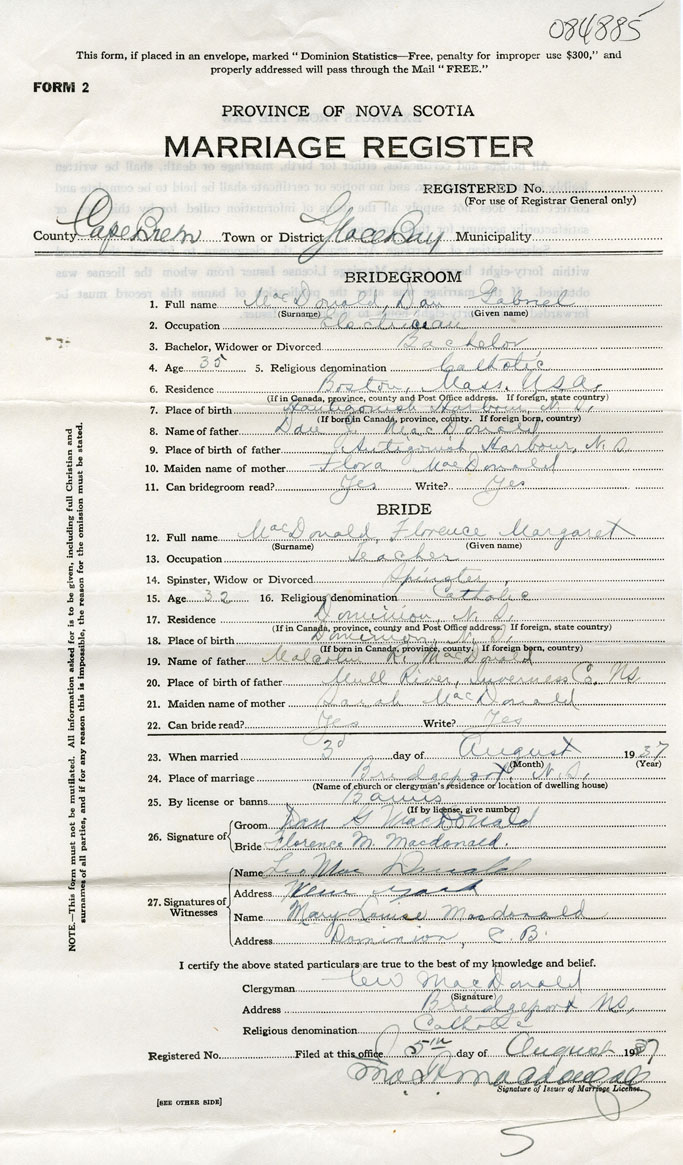 084885
This form, if placed in an envelope, marked "Dominion Statistics—Free, penalty for improper use $300," and
properly addressed will pass through the Mail "FREE."
FORM 2
PROVINCE OF NOVA SCOTIA
MARRIAGE REGISTER
REGISTERED No.
(For use of Registrar General only)
County Cape Breton Town or District Glace Bay Municipality
BRIDEGROOM
1. Full name MacDonald, Dan Gabriel
(Surname) (Given name)
2. Occupation Electrician
3. Bachelor, Widower or Divorced Bachelor
4. Age 35 5. Religious denomination Catholic
6. Residence Boston, Mass. U.S.A.
(If in Canada, province, county and Post Office address. If foreign, state country)
7. Place of birth Antigonish Harbour, N.S.
(If born in Canada, province, county. If foreign born, country)
8. Name of father Dan MacDonald
9. Place of birth of father Antigonish Harbour, N.S.
10. Maiden name of mother Flora MacDonald
11. Can bridegroom read? Yes Write? Yes
BRIDE
12. Full name MacDonald, Florence Margaret
(Surname) (Given name)
13. Occupation Teacher
14. Spinster, Widow or Divorced Spinster
15. Age 32 16. Religious denomination Catholic
17. Residence Dominion, N.S.
(If in Canada, province, county and Post Office address. If foreign, state country)
18. Place of birth Dominion, N.S.
(If born in Canada, province, county. If foreign born, country)
19. Name of father Malcolm R. MacDonald
20. Place of birth of father Mull River, Inverness Co. NS
21. Maiden name of mother Sarah MacDonald
22. Can bride read? Yes Write? Yes
23. When married 3d day of August 1937
(Month) (Year)
24. Place of marriage Bridgeport, N.S.
(Name of church or clergyman's residence or location of dwelling house)
25. By license or banns Banns
(If by license, give number)
26. Signature of
Groom Dan G MacDonald
Bride Florence M. Macdonald.
27. Signatures of Witnesses
Name Leo Mac Donald
Address New York
Name Mary Louise Macdonald
Address Dominion, C.B.
I certify the above stated particulars are true to the best of my knowledge and belief.
Clergyman MacDonald
(Signature)
Address Bridgeport NS,
Religious denomination Catholic
Registered No. Filed at this office 5th day of August 1937
Signature of Issuer of Marriage License
[SEE OTHER SIDE]
NOTE.—This form must not be mutilated. All information asked for is to be given, including full Christian and
surnames of all parties, and if for any reason this is impossible, the reason for the omission must be stated.